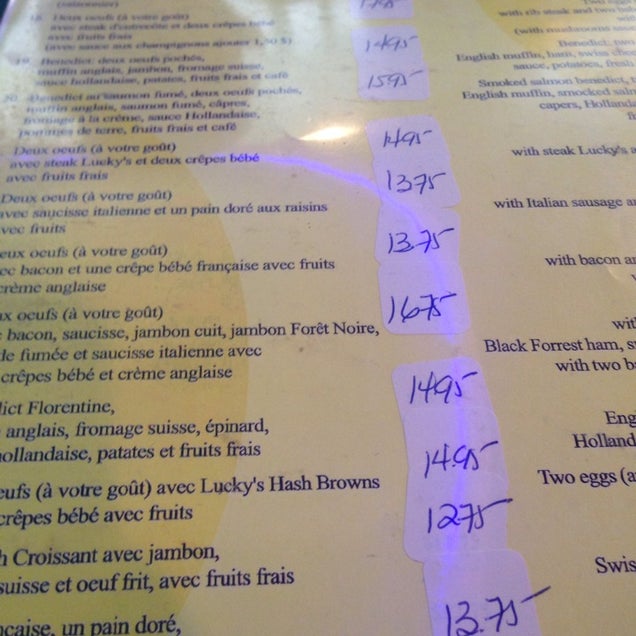 (saisonnier)
18. Deux oeufs (à votre goût)
avec steak d'entrecôte et deux crêpes bébé
avec fruits frais
(avec sauce aux champignons ajouter 1,50 $)
14.95
with rib steak and two
(with mushrooms
19. Benedict: deux oeufs pochés,
muffin anglais, jambon, fromage suisse,
sauce hollandaise, patates, fruits frais et café
15.95
Benedict, two
English muffin, ham, swiss
sauce, potatoes, fresh
20. Benedict au saumon fumé, deux oeufs pochés,
muffin anglais, saumon fumé, câpres,
fromage à la crême, sauce Hollandaise,
pommes de terre, fruits frais et café
14.95
Smoked salmon benedict,
English muffin, smocked salm
capers, Hollanda
Deux oeufs (à votre goût)
avec steak Lucky's et deux crêpes bébé
avec fruits frais
13.75
with steak Lucky's a
Deux oeufs (à votre goût)
avec saucisse italienne et un pain doré aux raisins
avec fruits
13.75
with Italian sausage an
eux oeufs (à votre goût)
ec bacon et une crêpe bébé française avec fruits
crème anglaise
16.75
with bacon an
ux oeufs (à votre goût)
bacon, saucisse, jambon cuit, jambon Forêt Noire,
de fumée et saucisse italienne avec
crêpes bébé et crème anglaise
14.95
wit
Black Forrest ham, s
with two b
ict Florentine,
anglais, fromage suisse, épinard,
hollandaise, patates et fruits frais
14.95
Eng
Holland
eufs (à votre goût) avec Lucky's Hash Browns
crêpes bébé avec fruits
12.75
Two eggs (a
h Croissant avec jambon,
suisse et oeuf frit, avec fruits frais
13.75
Swis
nçaise, un pain doré,